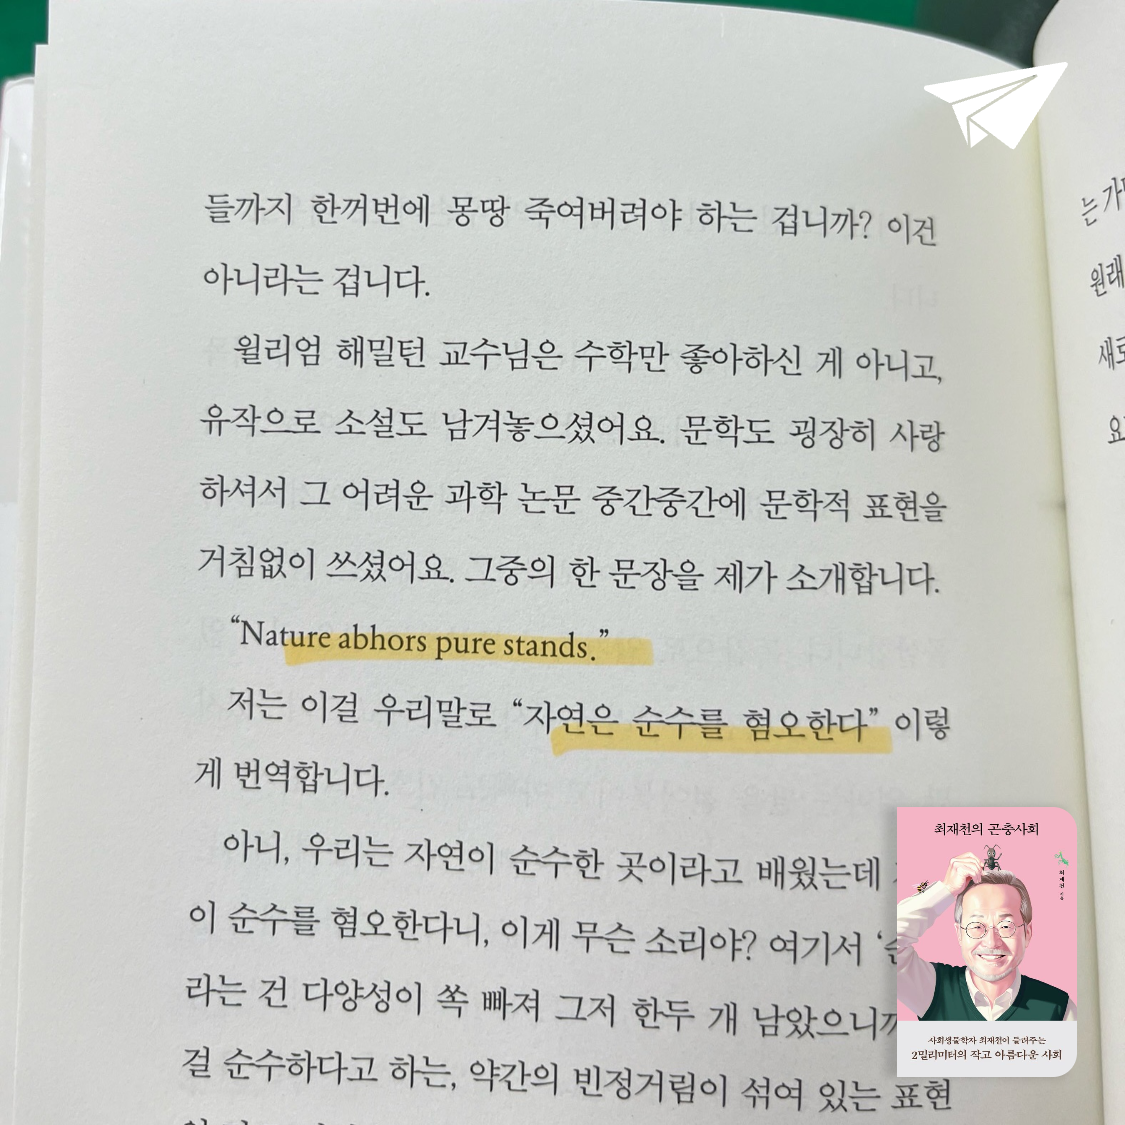 들까지 한꺼번에 몽땅 죽여버려야 하는 겁니까? 이건
아니라는 겁니다.
윌리엄 해밀턴 교수님은 수학만 좋아하신 게 아니고,
유작으로 소설도 남겨놓으셨어요. 문학도 굉장히 사랑
하셔서 그 어려운 과학 논문 중간중간에 문학적 표현을
거침없이 쓰셨어요. 그중의 한 문장을 제가 소개합니다.
“Nature abhors pure stands.”
저는 이걸 우리말로 “자연은 순수를 혐오한다” 이렇
게 번역합니다.
아니, 우리는 자연이 순수한 곳이라고 배웠는데
이 순수를 혐오한다니, 이게 무슨 소리야? 여기서
라는 건 다양성이 쏙 빠져 그저 한두 개 남았으니까
걸 순수하다고 하는, 약간의 빈정거림이 섞여 있는 표현
는
원래
새로
요
최재천의 곤충사회
최재천 지음
사회생물학자 최재천이 들려주는
2밀리미터의 작고 아름다운 사회